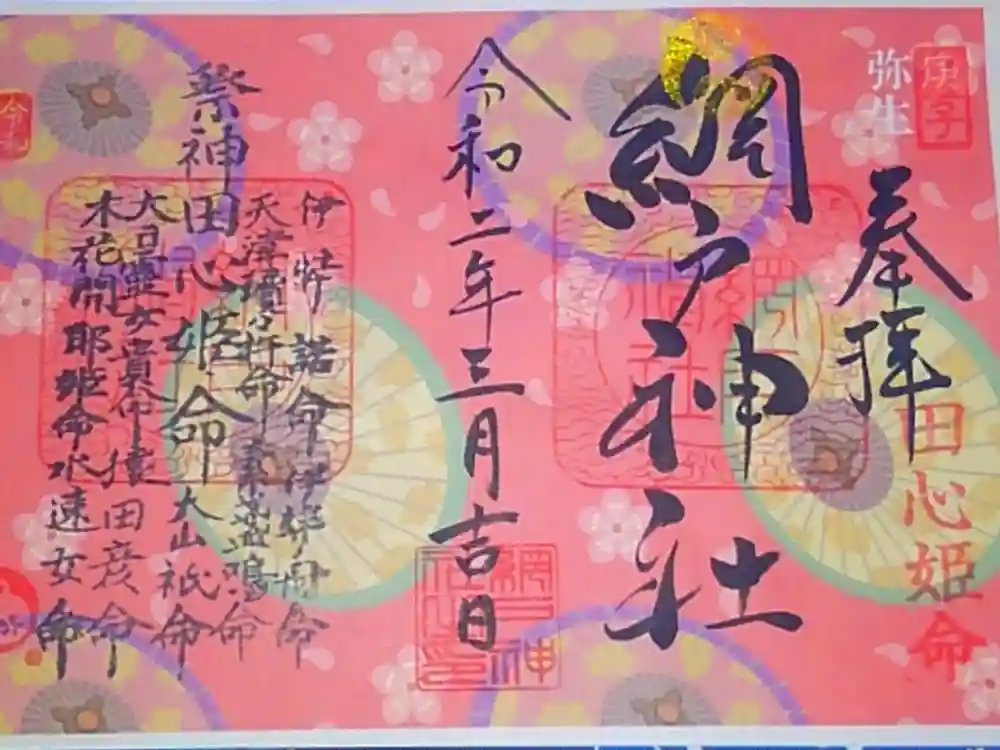 庚子
弥生
奉拝
田心姫命
網戸神社
令和二年三月吉日
網戸神
祭神
伊弉諾命 伊弉冉命
天津瓊瓊杵命 素盞鳴命
田心姫命 大山祇命
大日孁女貴命 猿田彦命
木花開耶姫命 水速女命
令和